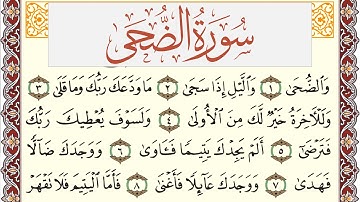 سُورَةُ الضُّحَى
وَالضُّحَىٰ ١ وَاللَّيْلِ إِذَا سَجَىٰ ٢ مَا وَدَّعَكَ رَبُّكَ وَمَا قَلَىٰ ٣
وَلَلْآخِرَةُ خَيْرٌ لَّكَ مِنَ الْأُولَىٰ ٤ وَلَسَوْفَ يُعْطِيكَ رَبُّكَ
فَتَرْضَىٰ ٥ أَلَمْ يَجِدْكَ يَتِيمًا فَآوَىٰ ٦ وَوَجَدَكَ ضَالًّا
فَهَدَىٰ ٧ وَوَجَدَكَ عَائِلًا فَأَغْنَىٰ ٨ فَأَمَّا الْيَتِيمَ فَلَا تَقْهَرْ